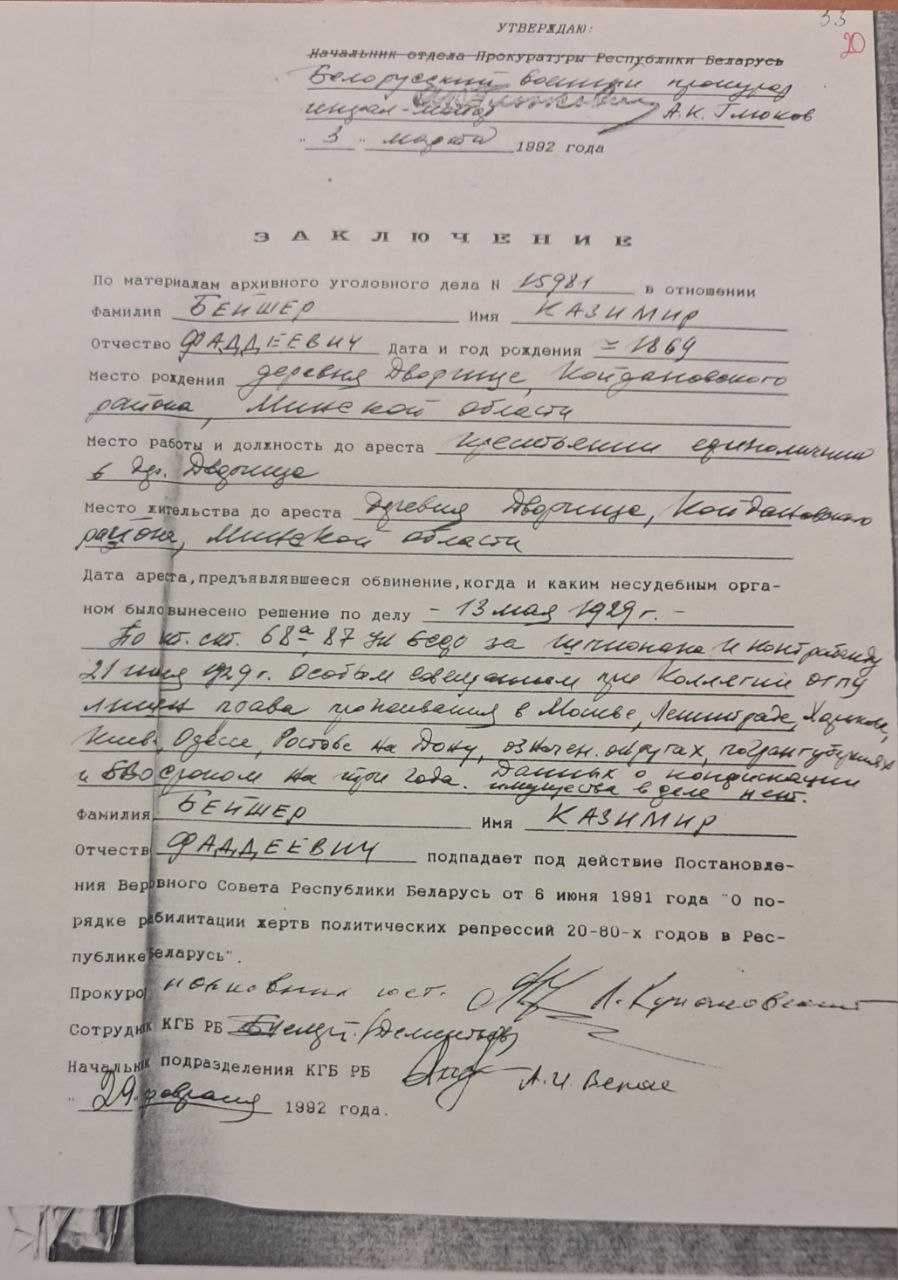 33
20
УТВЕРЖДАЮ:
Начальник отдела Прокуратуры Республики Беларусь
Белорусский военный прокурор
генерал-майор А.К. Глюков
" 3 " марта 1992 года
ЗАКЛЮЧЕНИЕ
По материалам архивного уголовного дела N 15981 в отношении
Фамилия БЕЙШЕР Имя КАЗИМИР
Отчество ФАДДЕЕВИЧ Дата и год рождения = 1869
Место рождения деревня Дворище, Койдановского
района, Минской области
Место работы и должность до ареста крестьянин единоличник
в дер. Дворища
Место жительства до ареста деревня Дворища, Койдановского
района, Минской области
Дата ареста, предъявлявшееся обвинение, когда и каким несудебным орга-
ном было вынесено решение по делу - 13 мая 1929 г. -
По ст. ст. 68а, 87 УК БССР за шпионаж и контрабанду
21 1929 г. Особым совещанием при Коллегии ОГПУ
лишен права проживания в Москве, Ленинграде, Харькове,
Киеве, Одессе, Ростове на Дону, означен. округах, погрангуберниях
и БВО сроком на три года. Данных о конфискации
имущества в деле нет.
Фамилия БЕЙШЕР Имя КАЗИМИР
Отчеств ФАДДЕЕВИЧ подпадает под действие Постановле-
ния Верховного Совета Республики Беларусь от 6 июня 1991 года "О по-
рядке реабилитации жертв политических репрессий 20-80-х годов в Рес-
публике Беларусь".
Прокуро полковник юст.
Сотрудник КГБ РБ
Начальник подразделения КГБ РБ А.И.
" 29 февраля 1992 года.